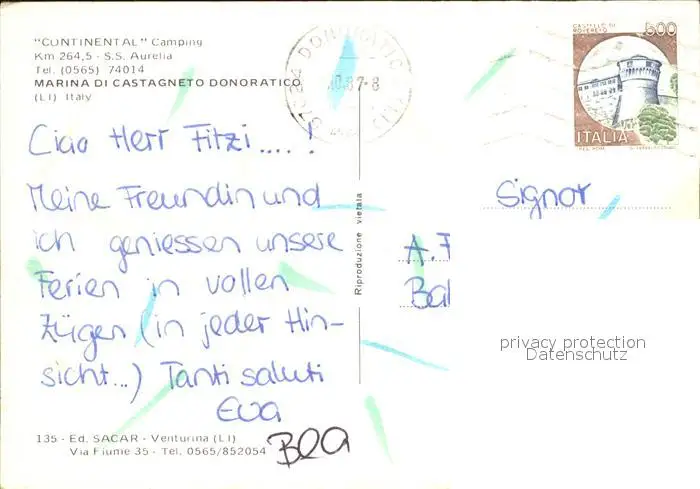 "CONTINENTAL" Camping
Km 264,5 - S.S. Aurelia
Tel. (0565) 74014
MARINA DI CASTAGNETO DONORATICO
(LI) Italy
Ciao Herr Fitzi....!
Meine Freundin und
ich geniessen unsere
Ferien in vollen
Zügen (in jeder Hin-
sicht...) Tanti saluti
Eva
Bea
135 - Ed. SACAR - Venturina (LI)
Via Fiume 35 - Tel. 0565/852054
Riproduzione vietata
DONORATICO
CASTELLO DI
ROVERETO
600
ITALIA
Signor
A. F
Bal
privacy protection
Datenschutz